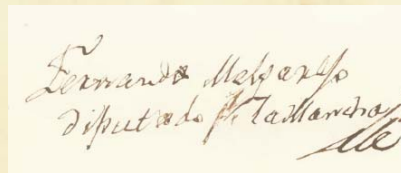 Fernando Melgarejo
Diputado pr. la Mancha